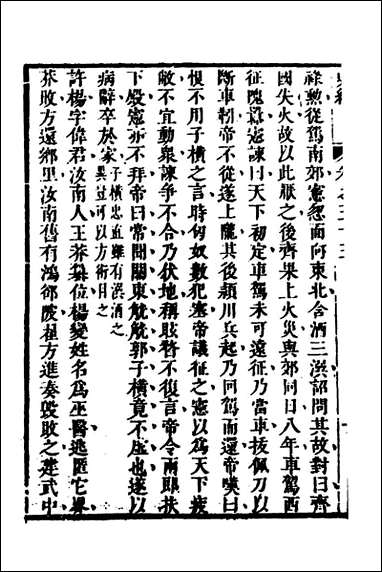 祿勳從駕南郊憲忽面向東北含酒三潠詔問其故對曰齊
國失火故以此厭之後齊果上火災與郊同日八年車駕西
征隗囂憲諫曰天下初定車駕未可遠征乃當車拔佩刀以
斷車靷帝不從遂上隴其後潁川兵起乃回駕而還帝嘆曰
恨不用子橫之言時匈奴數犯塞帝議征之憲以為天下疲
敝不宜動眾諫爭不合乃伏地稱眩瞀不復言帝令兩郎扶
下殿憲亦不拜帝曰常聞關東觥觥郭子橫竟不虛也遂以
病辭卒於家子橫忠直雖有潠酒之
異豈可以方術目之
許楊字偉君汝南人王莽簒位楊變姓名為巫醫逃匿它界
莽敗方還鄉里汝南舊有鴻郤陂翟方進奏毀敗之建武中